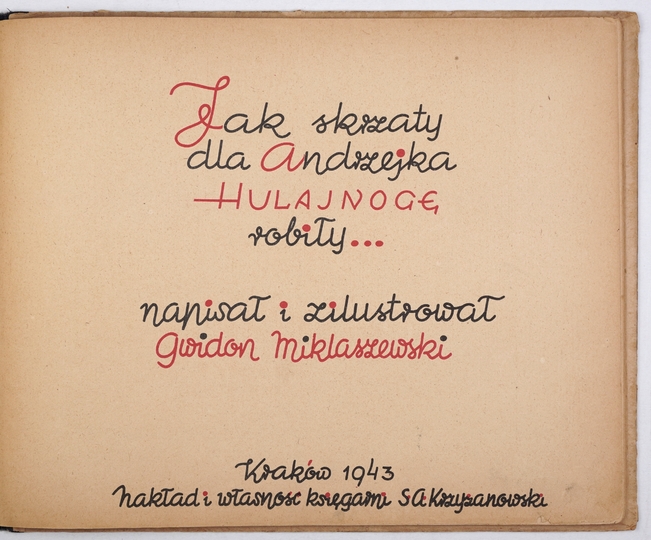 Jak skrzaty
dla Andrzejka
HULAJNOGĘ
robiły...
napisał i zilustrował
Gwidon Miklaszewski
Kraków 1943
Nakład i własność księgarni S.A. Krzyżanowski